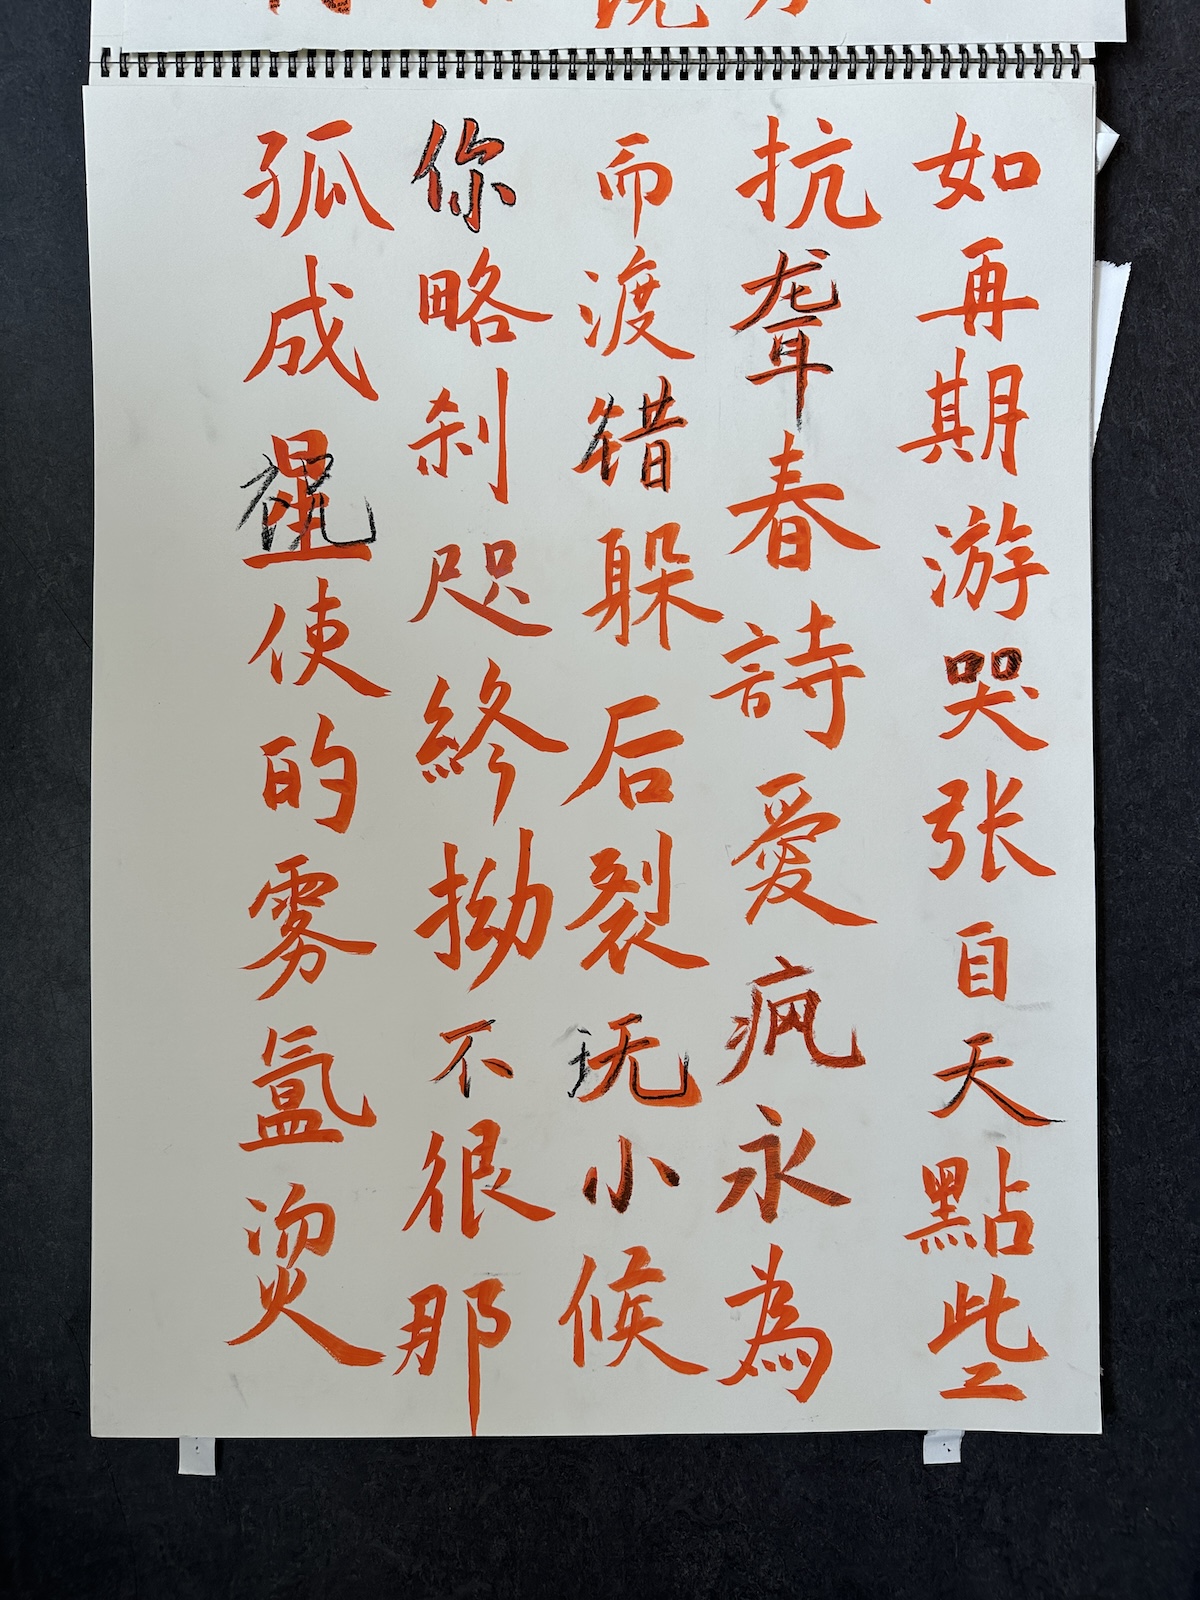 如再期游哭张自天點些
抗聋春詩愛疯永為
而渡错躲后裂玩小候
你略刹咫終拗不很那
孤成使的雾氲烫